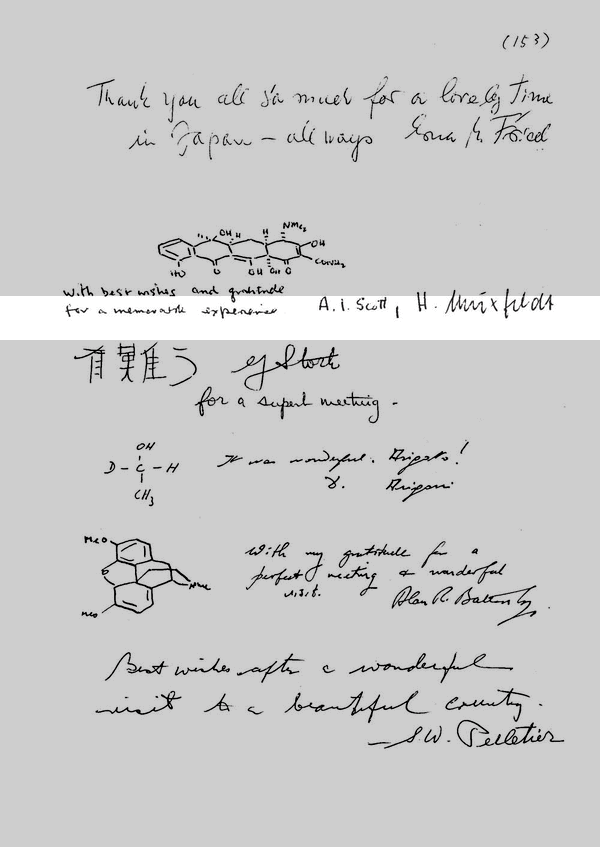 (153)
Thank you all so much for a lovely Time
in Japan - all ways
OH H H NMe2
OH
HO O OH OH O CONH2
with best wishes and gratitude
for a memorable experience A. I. Scott, H. Muxfeldt
有難う G Stork
for a superb meeting -
OH
D - C - H
CH3
It was wonderful. Arigato!
D. Arigoni
MeO
O
NMe
MeO
With my gratitude for a
perfect meeting & wonderful
visit. Alan R. Battersby.
Best wishes after a wonderful
visit to a beautiful country.
- S.W. Pelletier